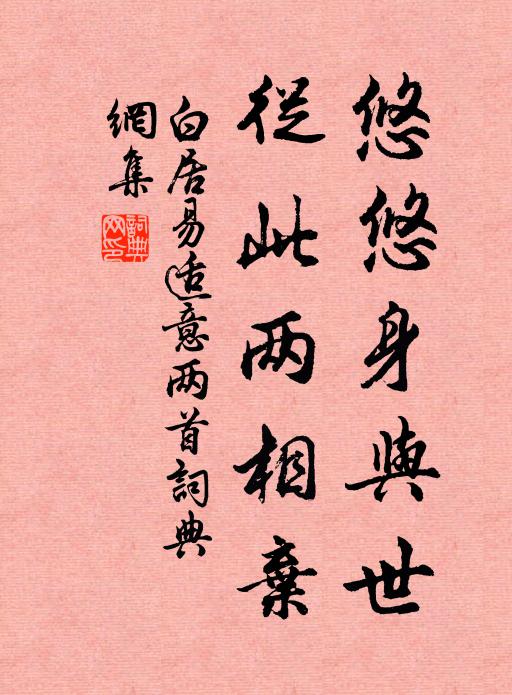 悠悠身與世
從此两相棄
白居易适意两首詞典
網集
詞典网印